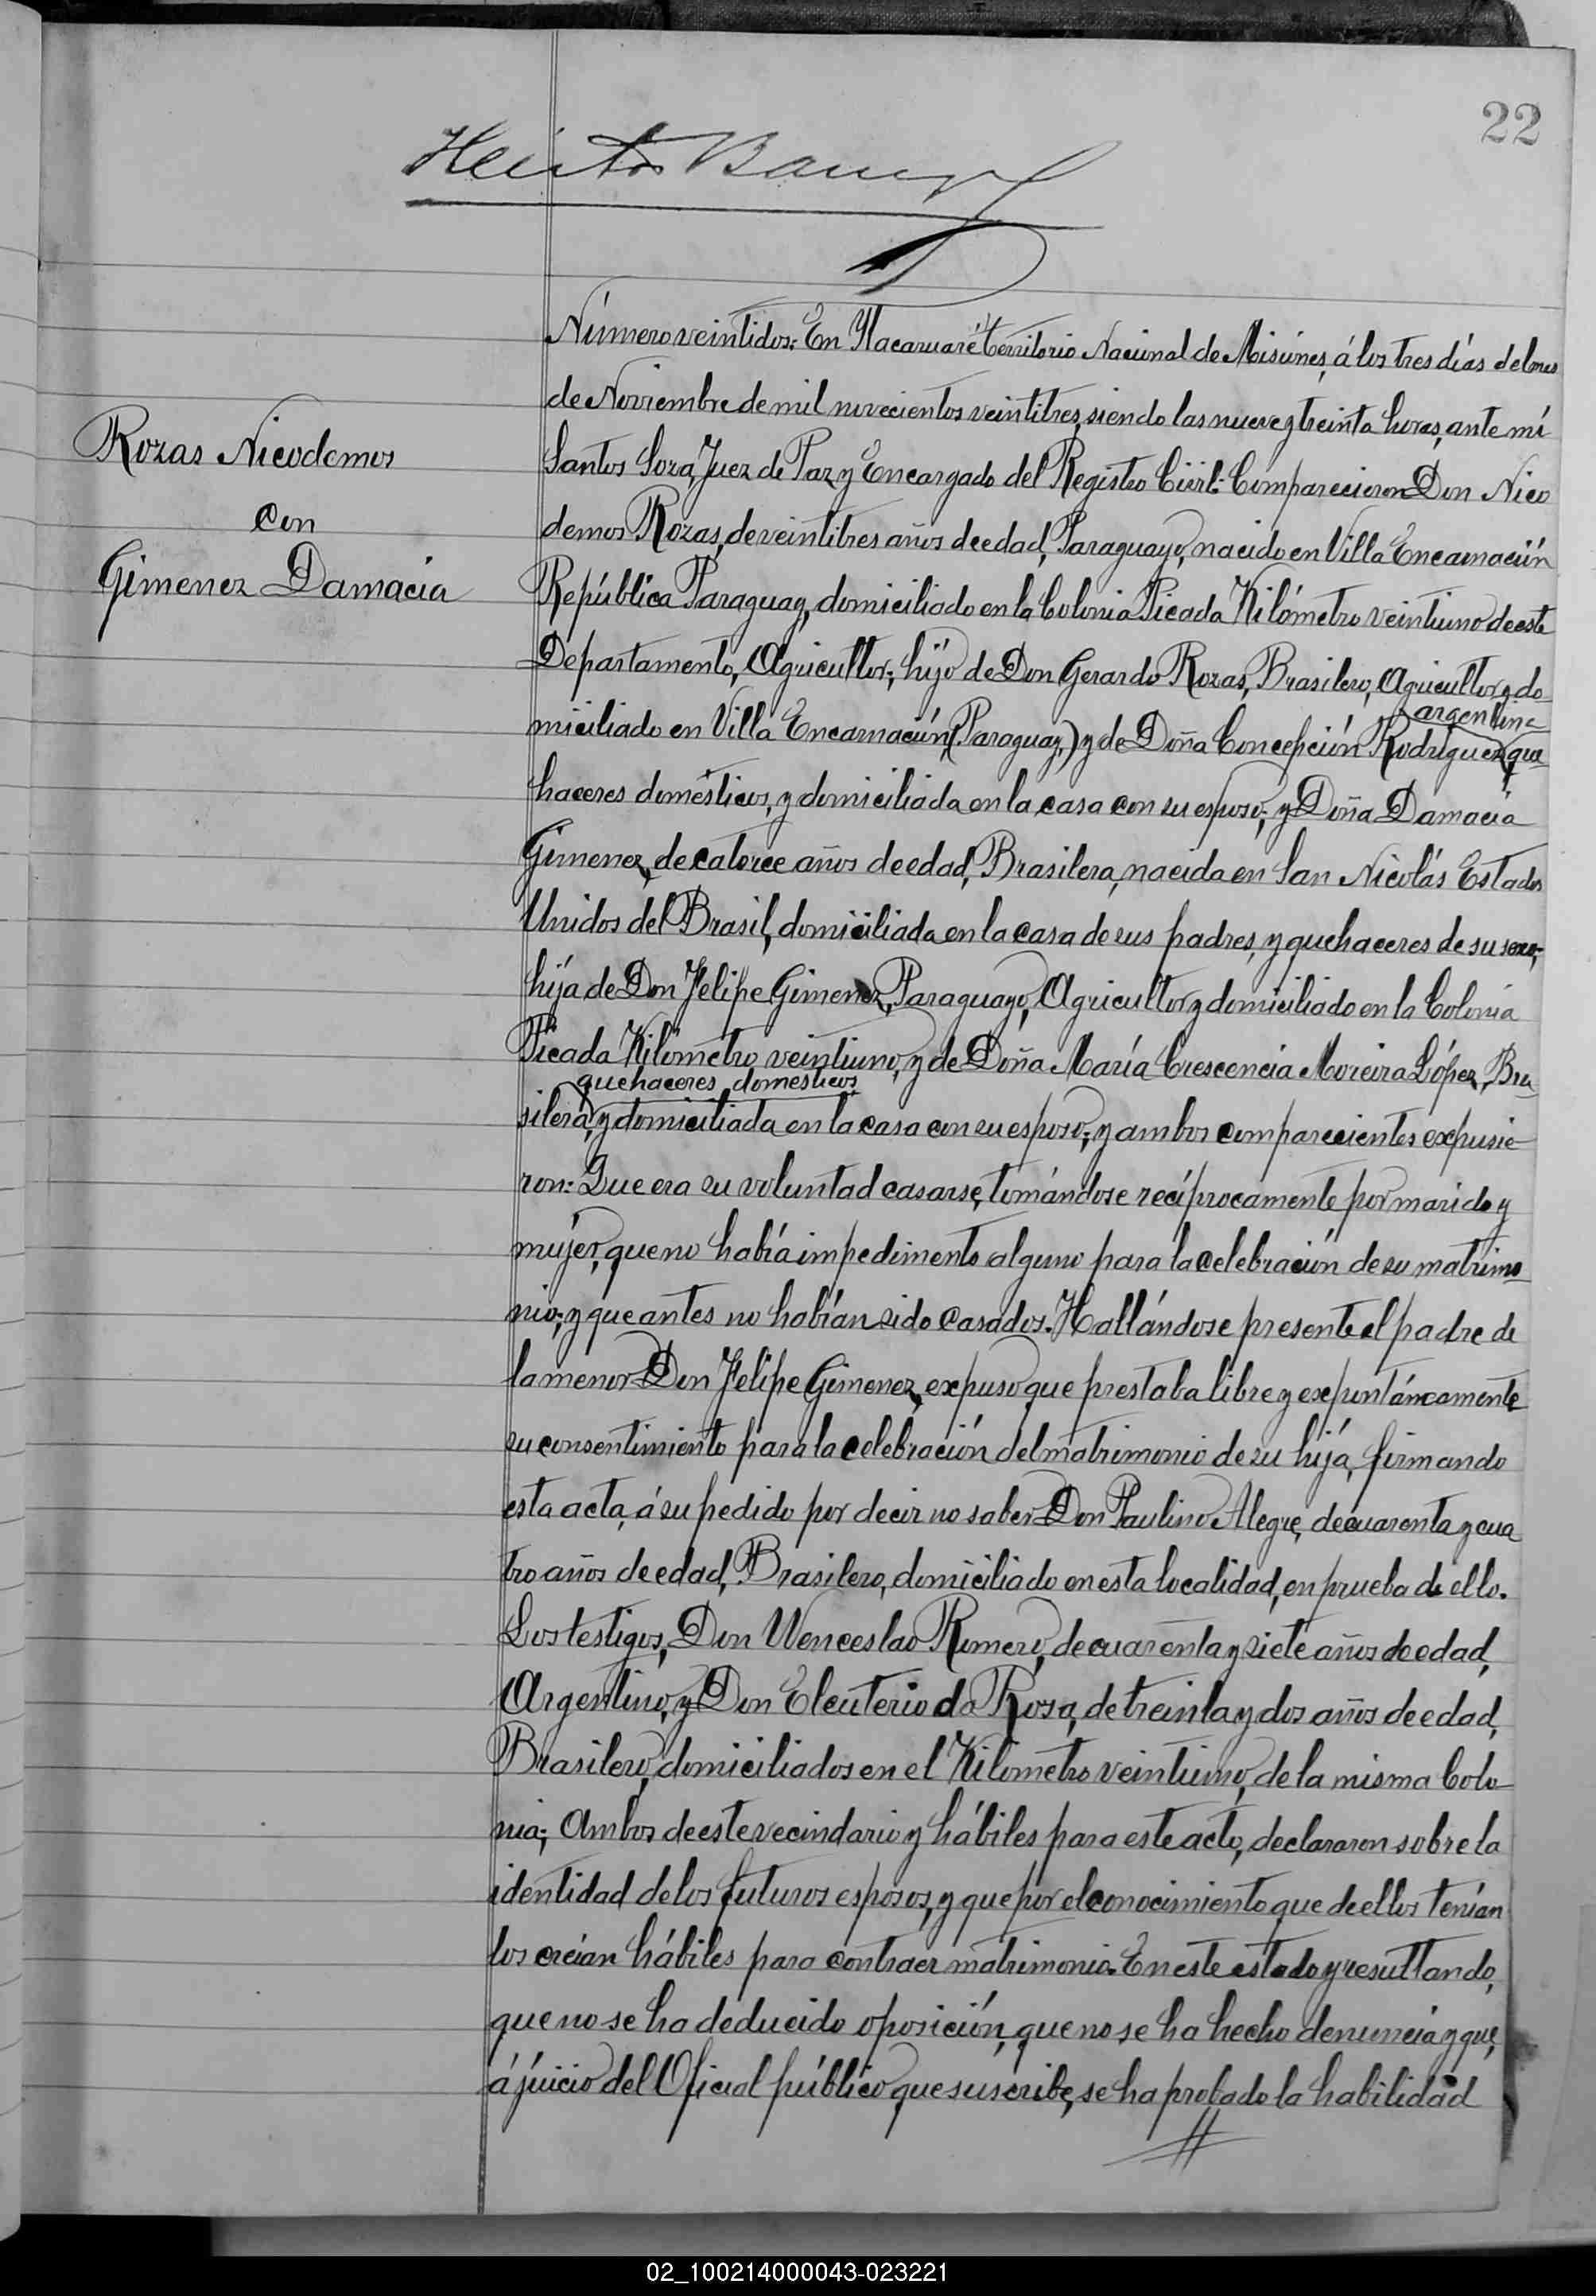 22
Número veintidos: En Itacaruaré, Territorio Nacional de Misiones, á los tres días del mes
de Noviembre de mil novecientos veintitres, siendo las nueve y treinta horas, ante mí
Rozas Nicodemos
con
Gimenez Damacia
Santos Soza, Juez de Paz y Encargado del Registro Civil: Comparecieron Don Nico
demos Rozas, de veintitres años de edad, Paraguayo, nacido en Villa Encarnación
República Paraguay, domiciliado en la Colonia Picada Kilómetro veintiuno de este
Departamento, Agricultor; hijo de Don Gerardo Rozas, Brasilero, Agricultor y do-
argentina
miciliado en Villa Encarnación (Paraguay,) y de Doña Concepción Rodríguez, que-
haceres domésticos, y domiciliada en la casa con su esposo; y Doña Damacia
Gimenez, de catorce años de edad, Brasilera, nacida en San Nicolás Estados
Unidos del Brasil, domiciliada en la casa de sus padres, y quehaceres de su sexo;
hija de Don Felipe Gimenez, Paraguayo, Agricultor y domiciliado en la Colonia
Picada Kilómetro veintiuno, y de Doña María Crescencia Moreira López, Bra
quehaceres domésticos
silera, y domiciliada en la casa con su esposo; y ambos comparecientes expusie-
ron: Que era su voluntad casarse, tomándose recíprocamente por marido y
mujer, que no había impedimento alguno para la celebración de su matrimo
nio; y que antes no habían sido casados. Hallándose presente el padre de
la menor Don Felipe Gimenez, expuso que prestaba libre y expontáneamente
su consentimiento para la celebración del matrimonio de su hija, firmando
esta acta, á su pedido por decir no saber Don Paulino Alegre, de cuarenta y cua
tro años de edad, Brasilero, domiciliado en esta localidad, en prueba de ello.
Los testigos, Don Wenceslao Romero, de cuarenta y siete años de edad,
Argentino, y Don Eleuterio da Rosa, de treinta y dos años de edad,
Brasilero, domiciliados en el Kilometro veintiuno, de la misma Colo-
nia; Ambos de este vecindario y hábiles para este acto, declararon sobre la
identidad de los futuros esposos, y que por el conocimiento que de ellos tenían
los creían hábiles para contraer matrimonio. En este estado y resultando,
que no se ha deducido oposición, que no se ha hecho denuncia y que,
á juicio del Oficial público que suscribe, se ha probado la habilidad
02_100214000043-023221